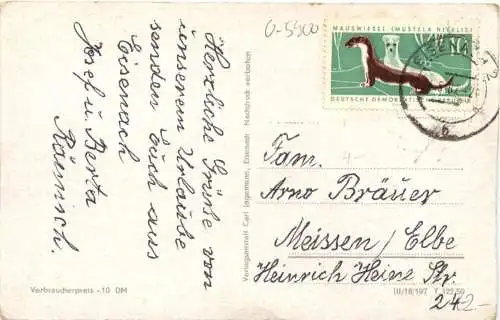 Herzliche Grüße von
unserem Urlaube
senden Euch aus
Eisenach
Josef u. Berta
Räinisch.
Verbraucherpreis -10 DM
Verlagsanstalt Carl Jagemann, Eisenach Nachdruck verboten
O-5300
MAUSWIESEL (MUSTELA NIVALIS)
DEUTSCHE DEMOKRATISCHE REPUBLIK
EISENACH
b
Fam.
Arno Bräuer
Meissen/Elbe
Heinrich Heine Str.
III/18/197
242-